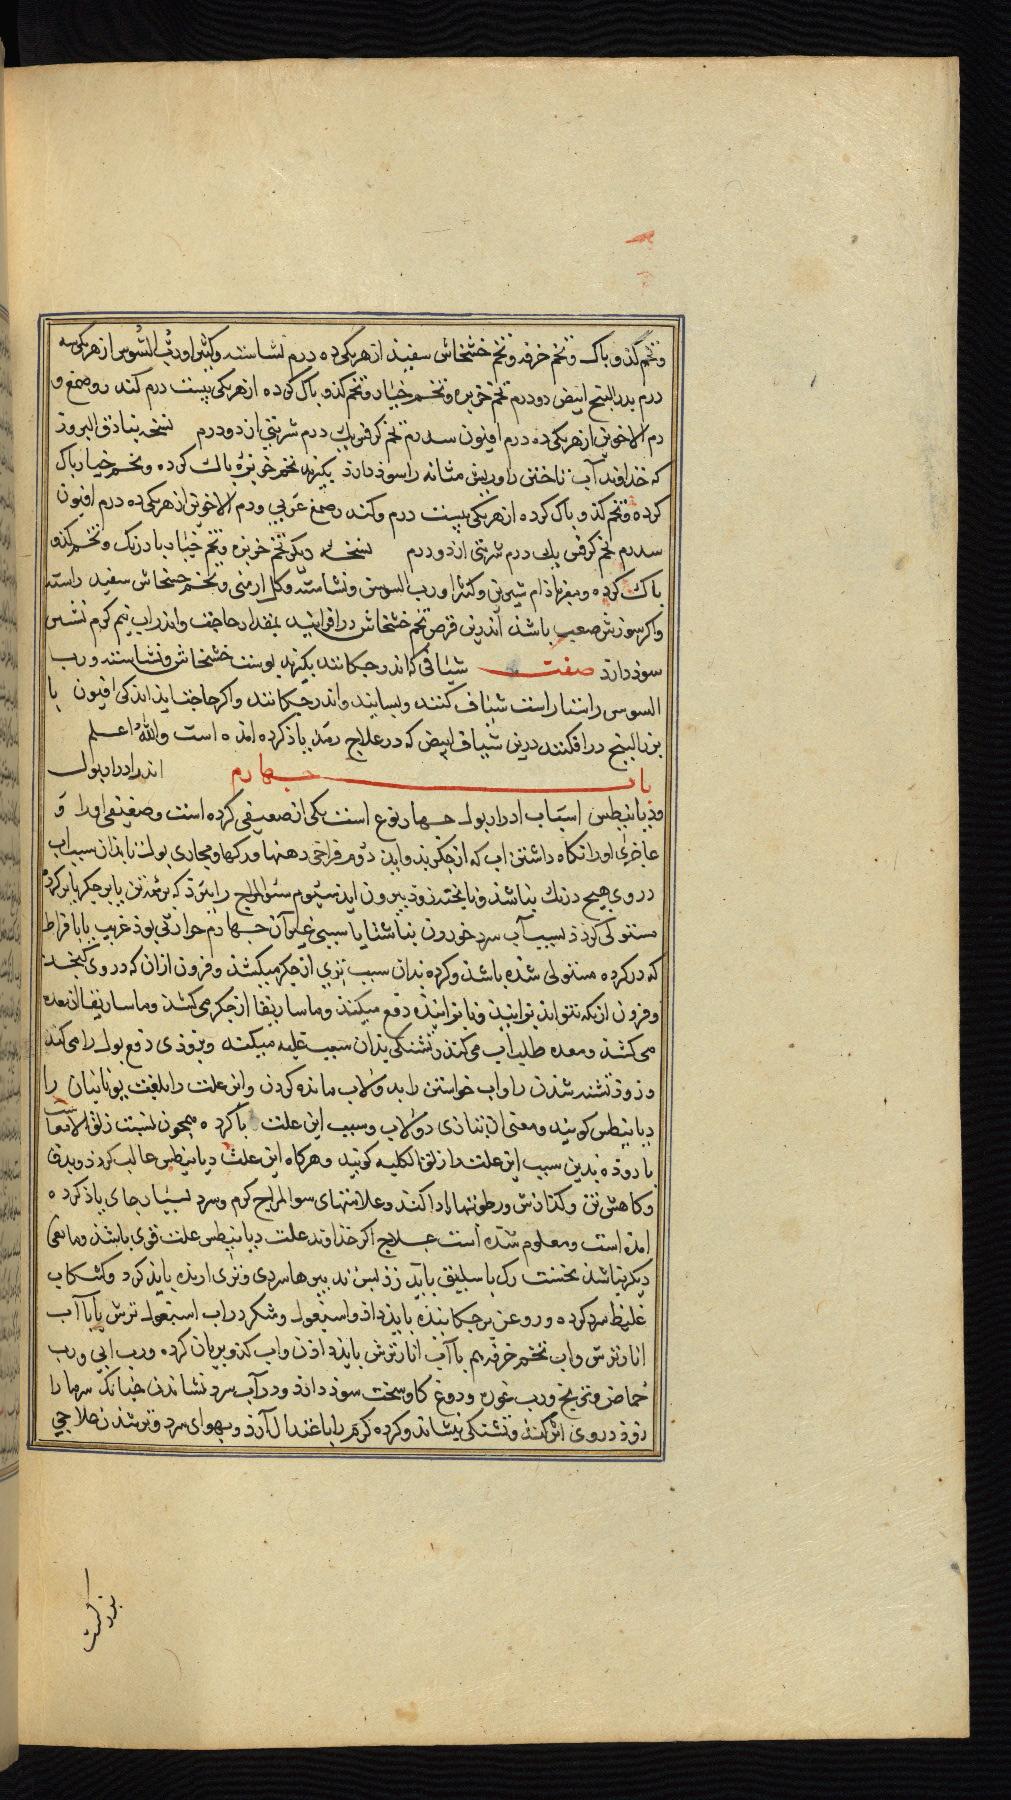 وتخم کدو پاک و تخم خرفه و تخم خشخاش سفید از هر یکی ده درم نشاسته و کتیرا و رب السوس از هر یکی سه
درم بزرالبنج ابیض دو درم تخم خربزه و تخم خیار و تخم کدو پاک کرده از هر یکی بیست درم کندرو صمغ و
دم الاخوین از هر یکی ده درم افیون سه درم تخم کرفس یک درم شربتی از دو درم نسخه بنادق البروز
که خداوند آب تاختن را و ریش مثانه را سوذ دارد بکیرند تخم خربزه پاک کرده و تخم خیار پاک
کرده و تخم کدو پاک کرده از هر یکی بیست درم و کندر و صمغ عربی و دم الاخوین از هر یکی ده درم افیون
سه درم تخم کرفس درم شربتی از دو درم نسخه دیکر تخم خربزه و تخم خیار بادرنک و تخم کدو
پاک کرده و مغز باذام شیرین و کتیرا و رب السوس و نشاسته و کل ارمنی و تخم خشخاش سفید راستا
و اکر سوزش صعب باشذ اندرین قرص تخم خشخاش در افزایند بمقدار حاجت و اندر آب نیم کرم نشستن
سوذ دارد صفت شیافی که اندر چکانند بکیرند پوست خشخاش و نشاسته و رب
السوس راستا راست شیاف کنند و بسایند و اندر چکانند و اکر حاجت ایذ اندکی افیون یا
بزرالبنج در افکنند درین شیاف ابیض که در علاج رمد یاذ کرده امذه است والله اعلم
باب چهارم اندر ادرار بول
و ذیابیطس اسباب ادرار بول چهار نوع است یکی از ضعیفی کرده است و ضعیفی او را و
عاجزی او را نکاه داشتن آب که از جکر بذو ایذ دوم فراخی دهنها و رکها و مجاری بول تا بذان سبب آب
در وی هیچ درنک نباشذ و ناپخته زوذ بیرون ایذ سیوم سوالمزاج را بنوذ که بر همه تن یا بر جکر یا بر کرده
مستولی کردد بسبب آب سرد خوردن بناشتا یا سببی غیر آن چهارم حرارتی بوذ غریب یا با فراط
که در کرده مستولی شذه باشذ و کرده بذان سبب تری از جکر میکشذ و فزون ازان که در وی کنجذ
و فزون از انکه بتواند توانیذ و ناتوانیذه دفع میکنذ و ماساریقا از جکر می کشذ و ماساریقا از معده
می کشذ و معده طلب آب می کنذ و تشنکی بذان سبب غلبه میکنذ و بزوذی دفع بول را می کنذ
و زوذ تشنه شذن را و آب خواستن را بد ولاب مانده کردن و این علت را بلغت یونانیان را
دیابیطس کویند و معنی آن بتازی دولاب و سبب این علت با کرده همچون نسبت زلق الامعا است
با روذه بدین سبب این علت را زلق الکلیه کویند و هر کاه این علت دیابیطس غالب کردذ و بدق
و کاهش تن و کذازش رطوبتها ادا کند و علامتهای سوالمزاج کرم و سرد بسیار جای یاذ کرده
امذه است و معلوم شذه است علاج اکر خذاوند علت دیابیطس علت قوی باشذ و مانعی
دیکر نباشذ نخست رک باسلیق بایذ زذ پس تدبیرها سردی و تری ارنده بایذ کرد و کشکاب
غلیظ سرد کرده و روغن بر چکانیده بایذ داذ و اسبغول و شکر در آب اسبغول ترش یا با آب
انار ترش و آب تخم خرفه هم با آب انار ترش بایذ داذن و آب کدو بریان کرده و رب آبی و رب
حماض و ترنج و رب غوره و دوغ کاو سخت سوذ دارذ و در آب سرد نشاندن چنانک سرما را
زوذ در وی اثر کند و تشنکی بنشاند و کرده کرم را با عتدال آرذ و بهوای سرد و تر شذن علاجی
بزرکست